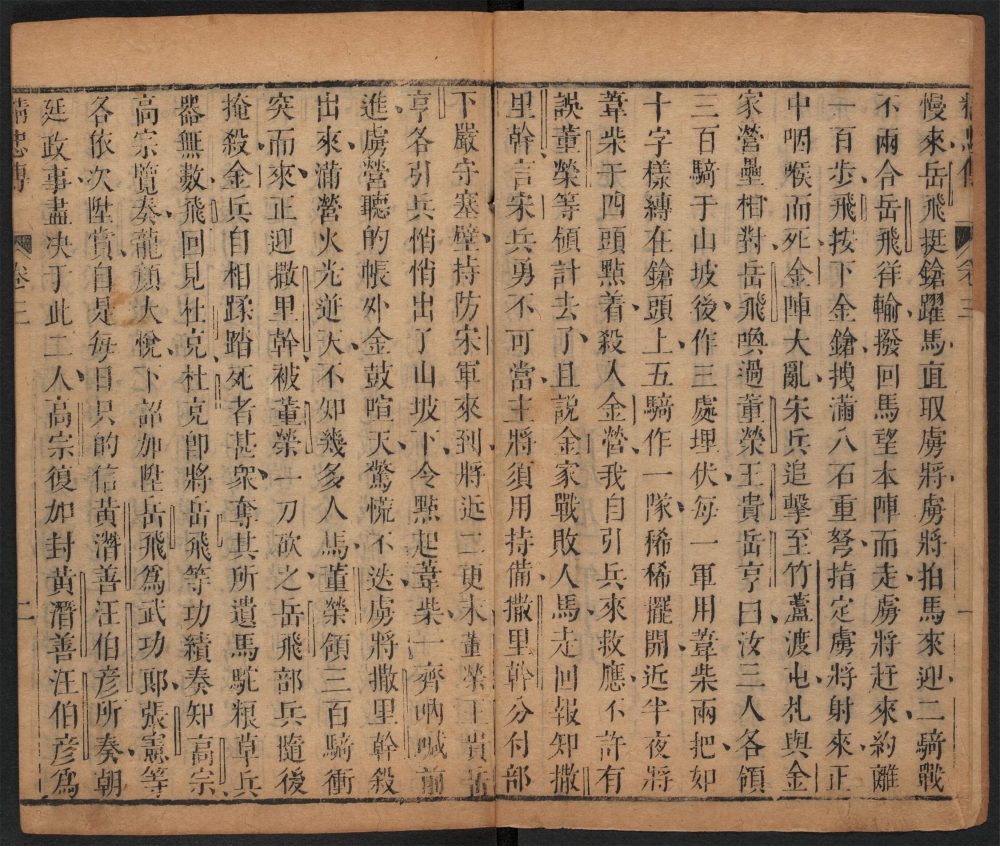 精忠傳 卷三 一
慢來岳飛挺鎗躍馬直取虜將虜將拍馬來迎二騎戰
不兩合岳飛佯輸撥回馬望本陣而走虜將赶來約離
一百步飛按下金鎗拽滿八石重弩指定虜將射來正
中咽喉而死金陣大亂宋兵追擊至竹蘆渡屯札與金
家營壘相對岳飛喚過董榮王貴岳亨曰汝三人各領
三百騎于山坡後作三處埋伏每一軍用葦柴兩把如
十字樣縛在鎗頭上五騎作一隊稀稀擺開近半夜將
葦柴于四頭點着殺入金營我自引兵來救應不許有
誤董榮等領計去了且説金家戰敗人馬走回報知撒
里幹言宋兵勇不可當主將須用持備撒里幹分付部
下嚴守塞壁持防宋軍來到將近二更末董榮王貴岳
亨各引兵悄悄出了山坡下令點起葦柴一齊吶喊前
進虜營聽的帳外金鼓喧天驚慌不迭虜將撒里幹殺
出來滿營火光迸天不知幾多人馬董榮領三百騎衝
突而來正迎撒里幹被董榮一刀砍之岳飛部兵隨後
掩殺金兵自相蹂踏死者甚衆奪其所遺馬駝粮草兵
器無数飛回見杜克杜克卽將岳飛等功績奏知高宗
高宗覽奏龍顔大悅下詔加陞岳飛爲武功郎張憲等
各依次陞賞自是每日只的信黃潛善汪伯彦所奏朝
廷政事盡决于此二人高宗復加封黃潛善汪伯彦爲
精忠傳 卷三 二